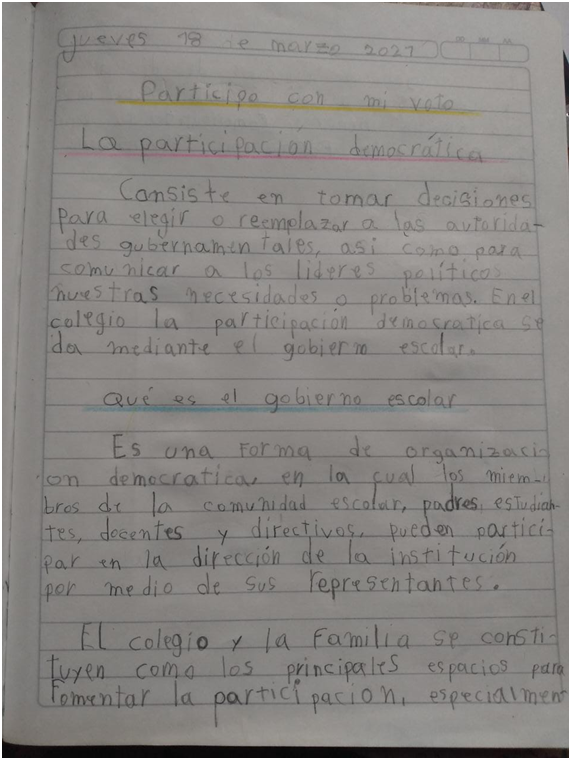 jueves 18 de marzo 2021
Participo con mi voto
La participación democrática
Consiste en tomar decisiones
para elegir o reemplazar a las autorida-
des gubernamentales, asi como para
comunicar a los lideres políticos
nuestras necesidades o problemas. En el
colegio la participación democratica se
da mediante el gobierno escolar.
Qué es el gobierno escolar
Es una forma de organizaci-
on democratica, en la cual los miem-
bros de la comunidad escolar, padres, estudian-
tes, docentes y directivos, pueden partici-
par en la dirección de la institución
por medio de sus representantes.
El colegio y la Familia se consti-
tuyen como los principales espacios para
fomentar la participacion, especialmen